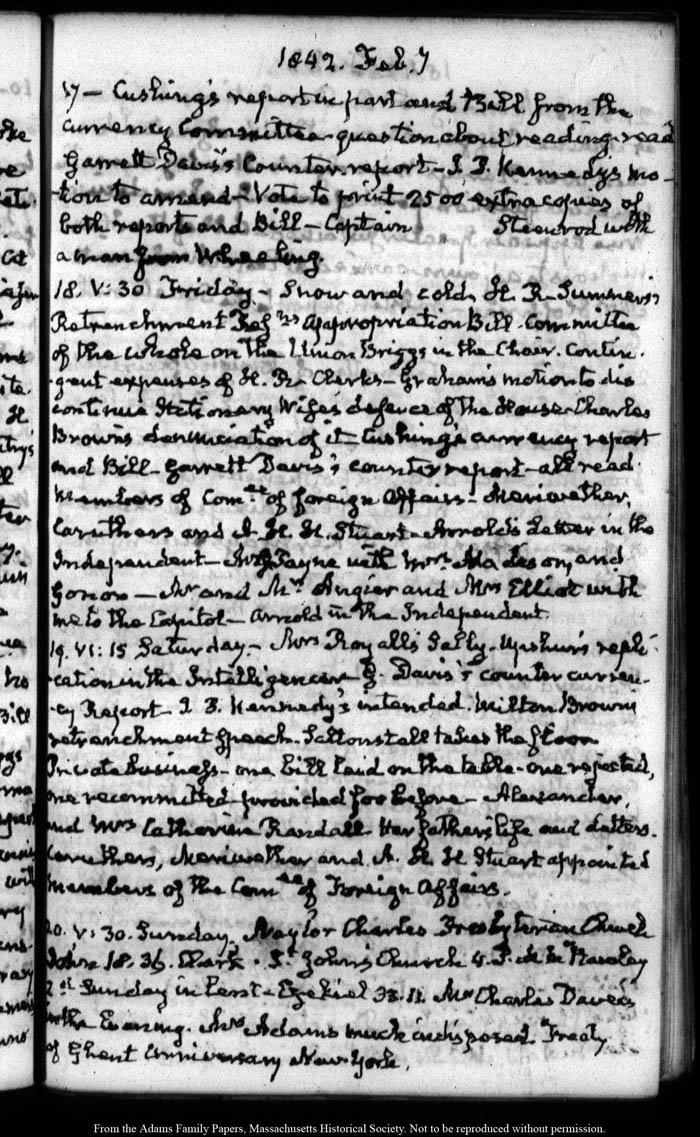 1842. Feb. 7
17 — Cushing's report in part and Bill from the
Currency Committee - question about reading - read
Garrett Davis's Counter report - J. P. Kennedy's mo-
tion to amend - Vote to print 2500 extra copies of
both reports and Bill - Captain Steenrod with
a man from Wheeling.
18. V: 30 Friday - Snow and cold. H. R. Summers's
Retrenchment Appropriation Bill. Committee
of the whole on the Union Briggs in the Chair. Contin-
gent expenses of H. R. Clerks - Graham's motion to dis
continue Stationary Wise's defence of the House - Charles
Brown's denunciation of it Cushing's currency report
and Bill - Garrett Davis's counter report - all read.
Members of Com.ee of foreign Affairs - Meriwether,
Caruthers and A. H. H. Stuart - Arnold's Letter in the
Independent - Payne with Mrs. Madison, and
— Mr and Mrs Angier and Mrs Elliot with
me to the Capitol - Arnold in the Independent.
19. VI: 15 Saturday - Mrs Royall's Sally. Upshur's repli-
cation in the Intelligencer G. Davis's counter curren-
cy Report - J. P. Kennedy's intended. Milton Brown's
retrenchment speech. Saltonstall takes the floor
Private business - one bill laid on the table - one rejected,
one recommitted - provided for before - Alexander,
and Mrs Catherine Randall Her father's life and Letters.
Caruthers, Meriwether and A. H. H. Stuart appointed
members of the Com.ee of Foreign Affairs.
20. V: 30. Sunday. Naylor Charles Presbyterian Church
John 18. 36. Clark. St. John's Church 4. P. M.
2d Sunday in Lent - Ezekiel 33. 11. Mr Charles Daveis
in the Evening. Mrs Adams much indisposed Treaty
of Ghent Anniversary New-York.
From the Adams Family Papers, Massachusetts Historical Society. Not to be reproduced without permission.